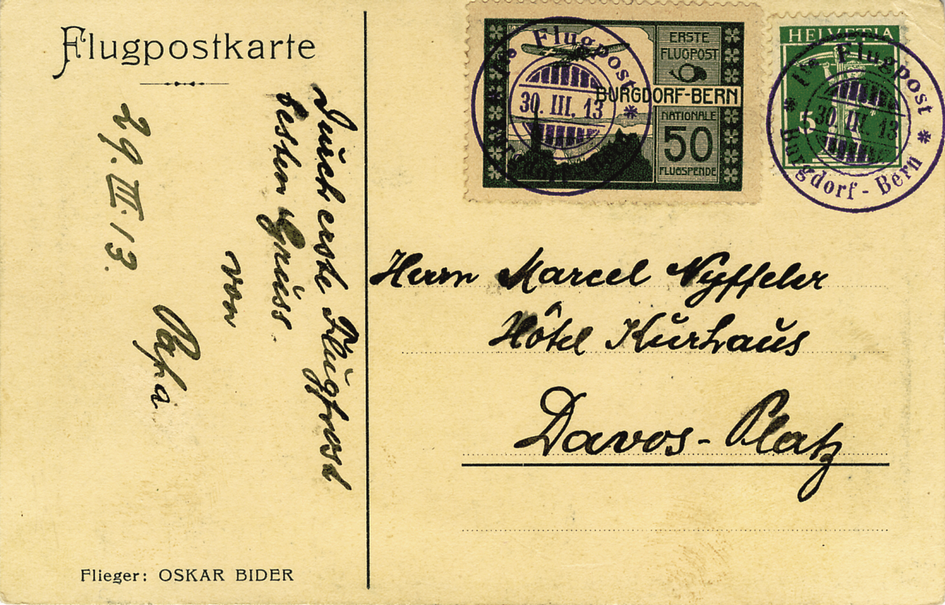 Flugpostkarte
29. III. 13.
Durch erste Flugpost
besten Gruss.
von
Papa
Flieger: OSKAR BIDER
ERSTE
FLUGPOST
BURGDORF-BERN
NATIONALE
50
FLUGSPENDE
Flugpost
30. III. 13
HELVETIA
5
Flugpost
30. III. 13
Burgdorf - Bern
Herrn Marcel Nyffeler
Hôtel Kurhaus
Davos-Platz